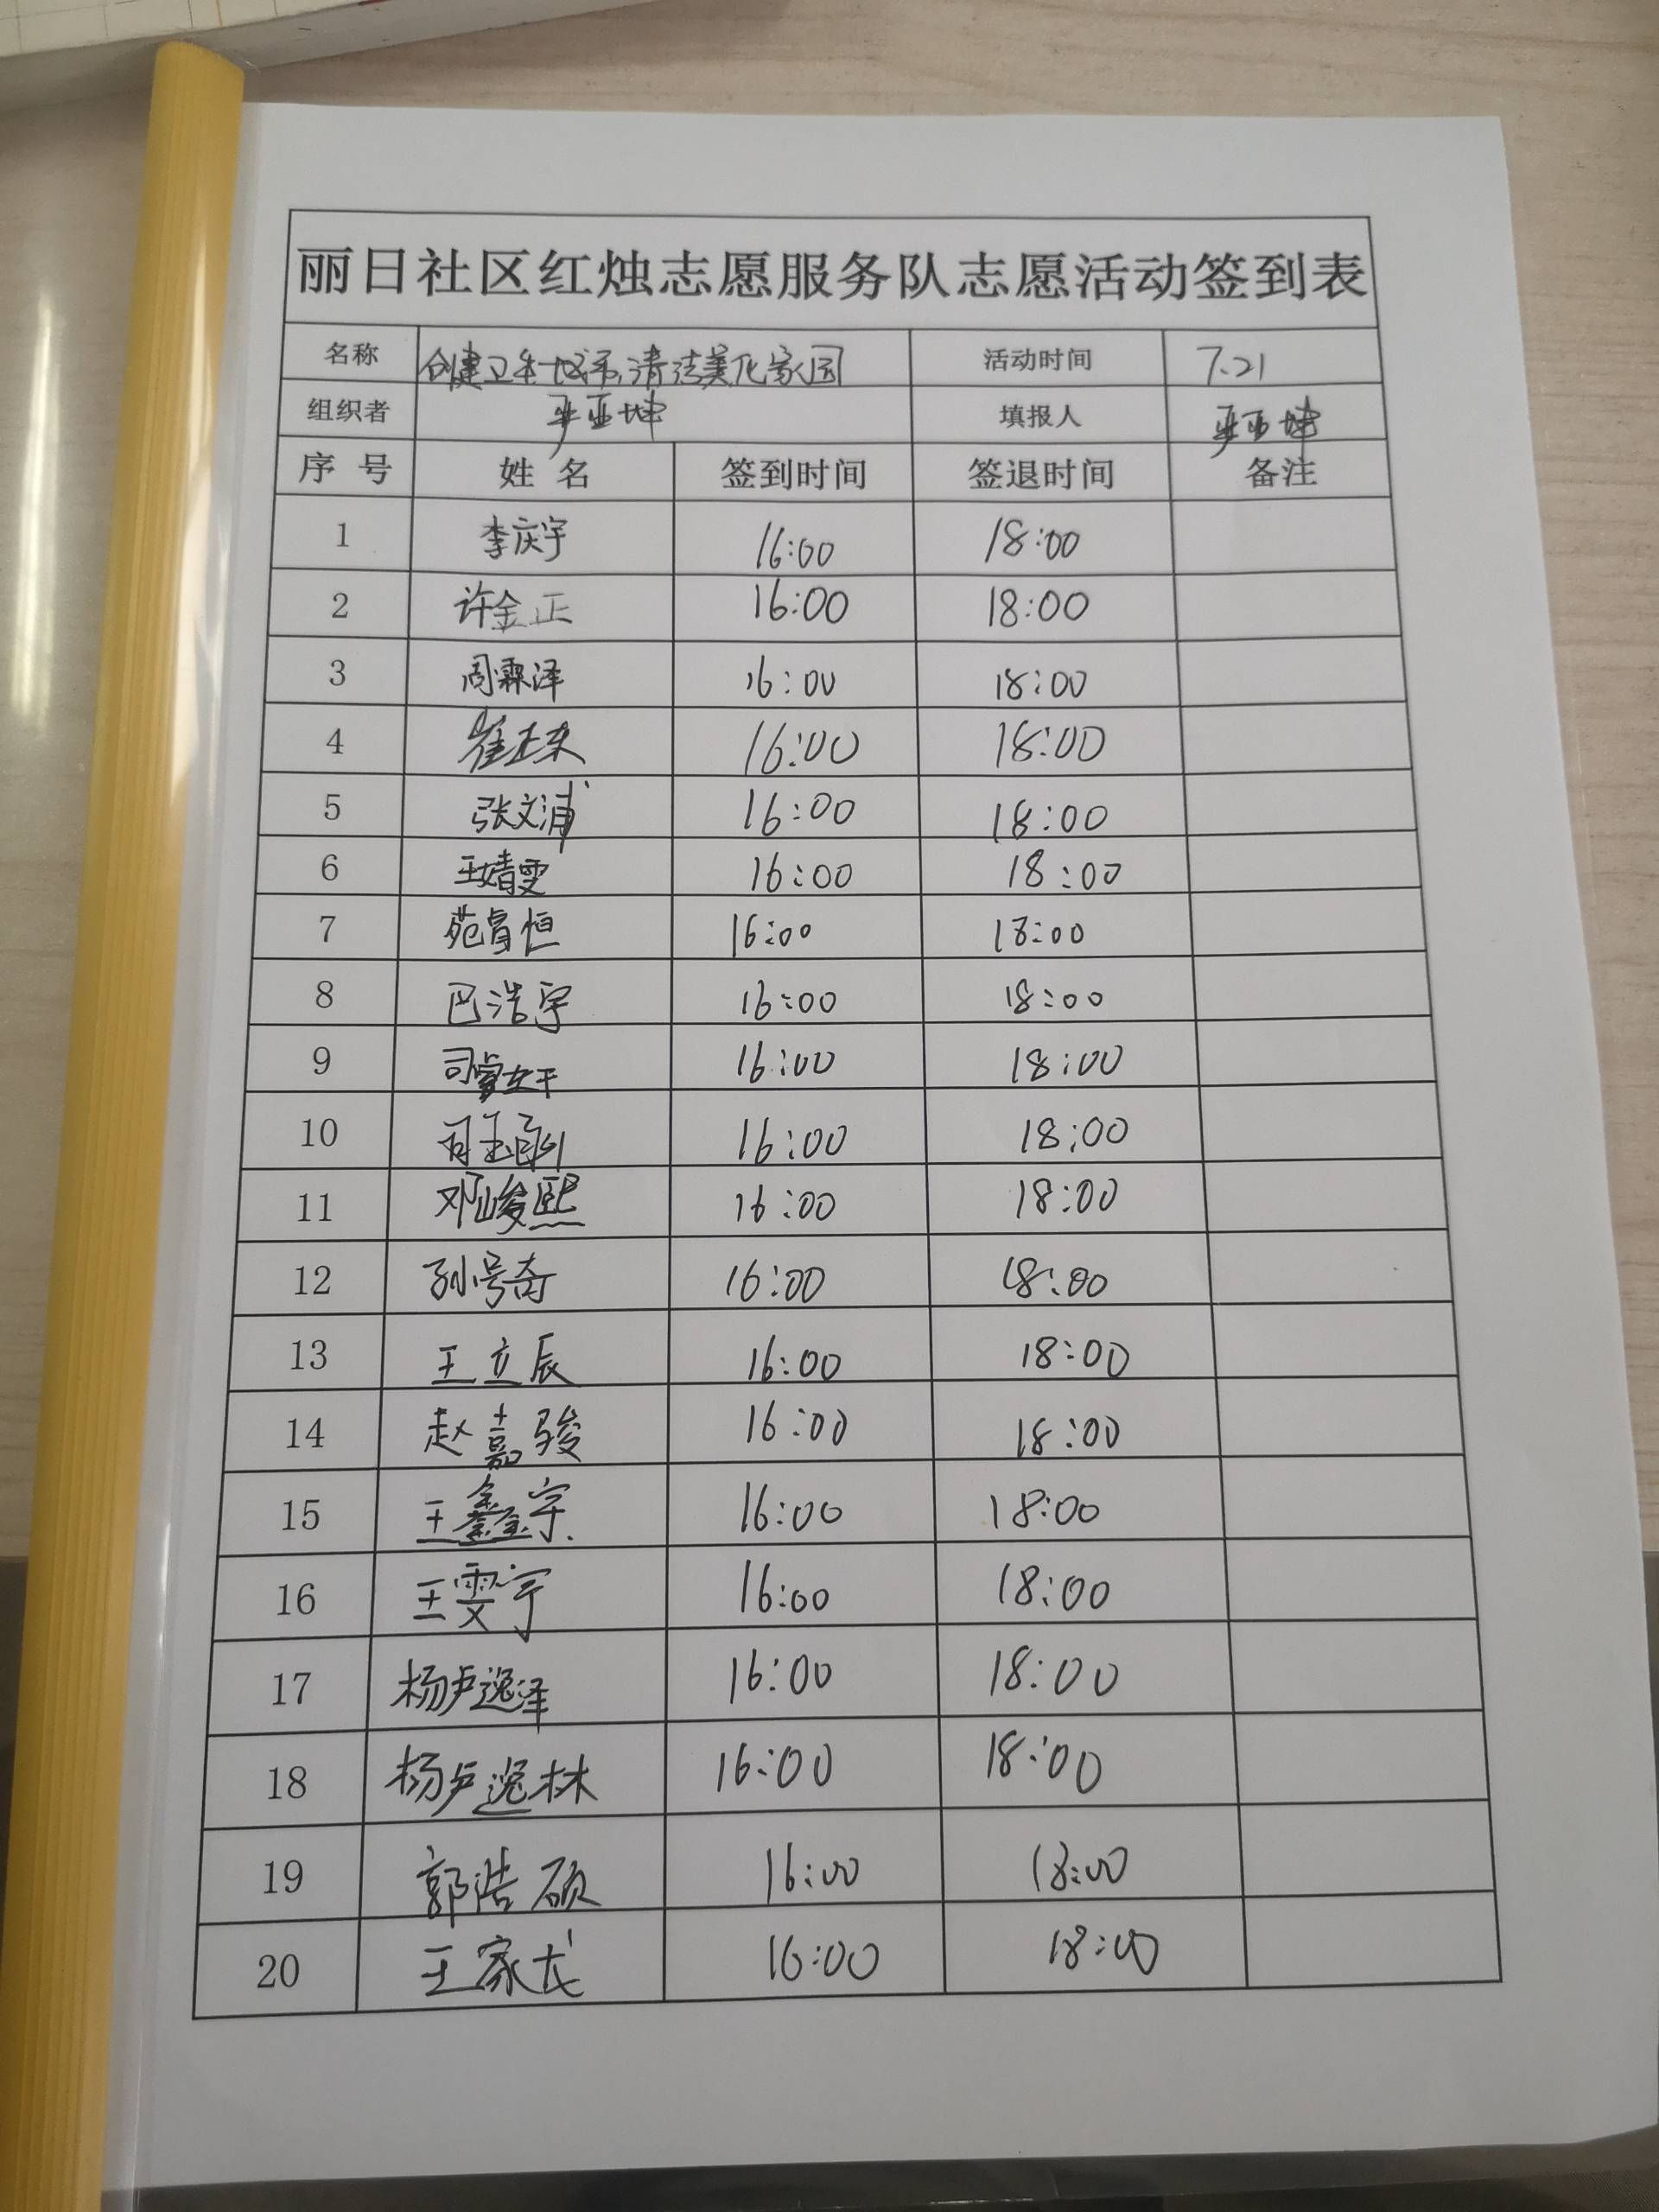 丽日社区红烛志愿服务队志愿活动签到表
名称 创建卫生城市,清洁美化家园 活动时间 7.21
组织者 严亚坤 填报人 严亚坤
序号 姓名 签到时间 签退时间 备注
1 李庆宇 16:00 18:00
2 许金正 16:00 18:00
3 周霖泽 16:00 18:00
4 崔 16:00 18:00
5 张文浦 16:00 18:00
6 王婧雯 16:00 18:00
7 苑睿恒 16:00 18:00
8 巴浩宇 16:00 18:00
9 司睿 16:00 18:00
10 16:00 18:00
11 邓峻熙 16:00 18:00
12 孙号奇 16:00 18:00
13 王立辰 16:00 18:00
14 赵嘉骏 16:00 18:00
15 王鑫宇 16:00 18:00
16 王雯宇 16:00 18:00
17 杨卢逸泽 16:00 18:00
18 杨卢逸林 16:00 18:00
19 郭浩硕 16:00 18:00
20 王家龙 16:00 18:00